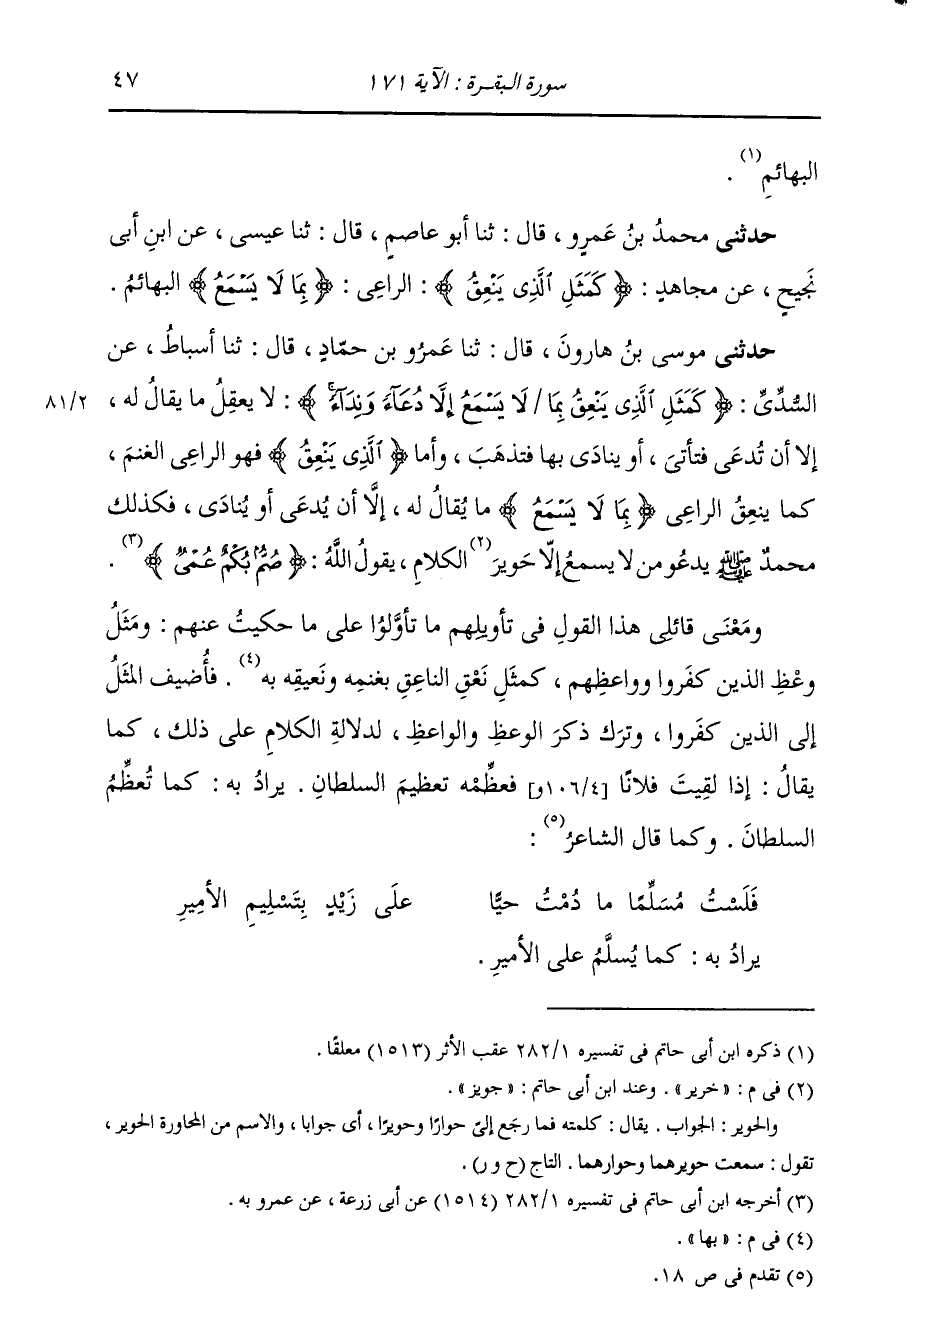 سورة البقرة : الآية ١٧١ ٤٧
البهائمِ(١) .
حدثنى محمدُ بنُ عَمرٍو ، قال : ثنا أبو عاصمٍ ، قال : ثنا عيسى ، عن ابنِ أبى
نَجيحٍ ، عن مجاهدٍ : ﴿ كَمَثَلِ ٱلَّذِى يَنْعِقُ ﴾ : الراعِى : ﴿ بِمَا لَا يَسْمَعُ ﴾ البهائمُ .
حدثنى موسى بنُ هارونَ ، قال : ثنا عَمرُو بن حمّادٍ ، قال : ثنا أسباطُ ، عن
السُّدِّىِّ : ﴿ كَمَثَلِ ٱلَّذِى يَنْعِقُ بِمَا / لَا يَسْمَعُ إِلَّا دُعَآءً وَنِدَآءً ﴾ : لا يعقِلُ ما يقالُ له ، ٨١/٢
إلا أن تُدعَى فتأتىَ ، أو ينادَى بها فتذهَبَ ، وأما ﴿ ٱلَّذِى يَنْعِقُ ﴾ فهو الراعِى الغنمَ ،
كما ينعِقُ الراعِى ﴿ بِمَا لَا يَسْمَعُ ﴾ ما يُقالُ له ، إلَّا أن يُدعَى أو يُنادَى ، فكذلك
محمدٌ ﷺ يدعُو من لا يسمعُ إلّا حَويرَ(٢) الكلامِ ، يقولُ اللَّهُ : ﴿ صُمٌّۢ بُكْمٌ عُمْىٌ ﴾(٣) .
ومَعْنَى قائلِى هذا القولِ فى تأويلِهم ما تأوَّلوُا على ما حكيتُ عنهم : ومَثَلُ
وعْظِ الذين كفَروا وواعظِهم ، كمثَلِ نَعْقِ الناعِقِ بغنمِه ونَعيقِه به(٤) . فأُضيف المثَلُ
إلى الذين كفَروا ، وترَك ذكرَ الوعظِ والواعظِ ، لدلالةِ الكلامِ على ذلك ، كما
يقالُ : إذا لقِيتَ فلانًا [١٠٦/٤و] فعظِّمْه تعظيمَ السلطانِ . يرادُ به : كما تُعظِّمُ
السلطانَ . وكما قال الشاعرُ(٥) :
فَلَسْتُ مُسَلِّمًا ما دُمْتُ حيًّا علَى زَيْدٍ بِتَسْلِيمِ الأَمِيرِ
يرادُ به : كما يُسلَّمُ على الأميرِ .
(١) ذكره ابن أبى حاتم فى تفسيره ٢٨٢/١ عقب الأثر (١٥١٣) معلقًا .
(٢) فى م : « خرير » . وعند ابن أبى حاتم : « جويز » .
والحوير : الجواب . يقال : كلمته فما رجَع إلىّ حوارًا وحويرًا ، أى جوابا ، والاسم من المحاورة الحوير ،
تقول : سمعت حويرهما وحوارهما . التاج (ح و ر) .
(٣) أخرجه ابن أبى حاتم فى تفسيره ٢٨٢/١ (١٥١٤) عن أبى زرعة ، عن عمرو به .
(٤) فى م : « بها » .
(٥) تقدم فى ص ١٨.